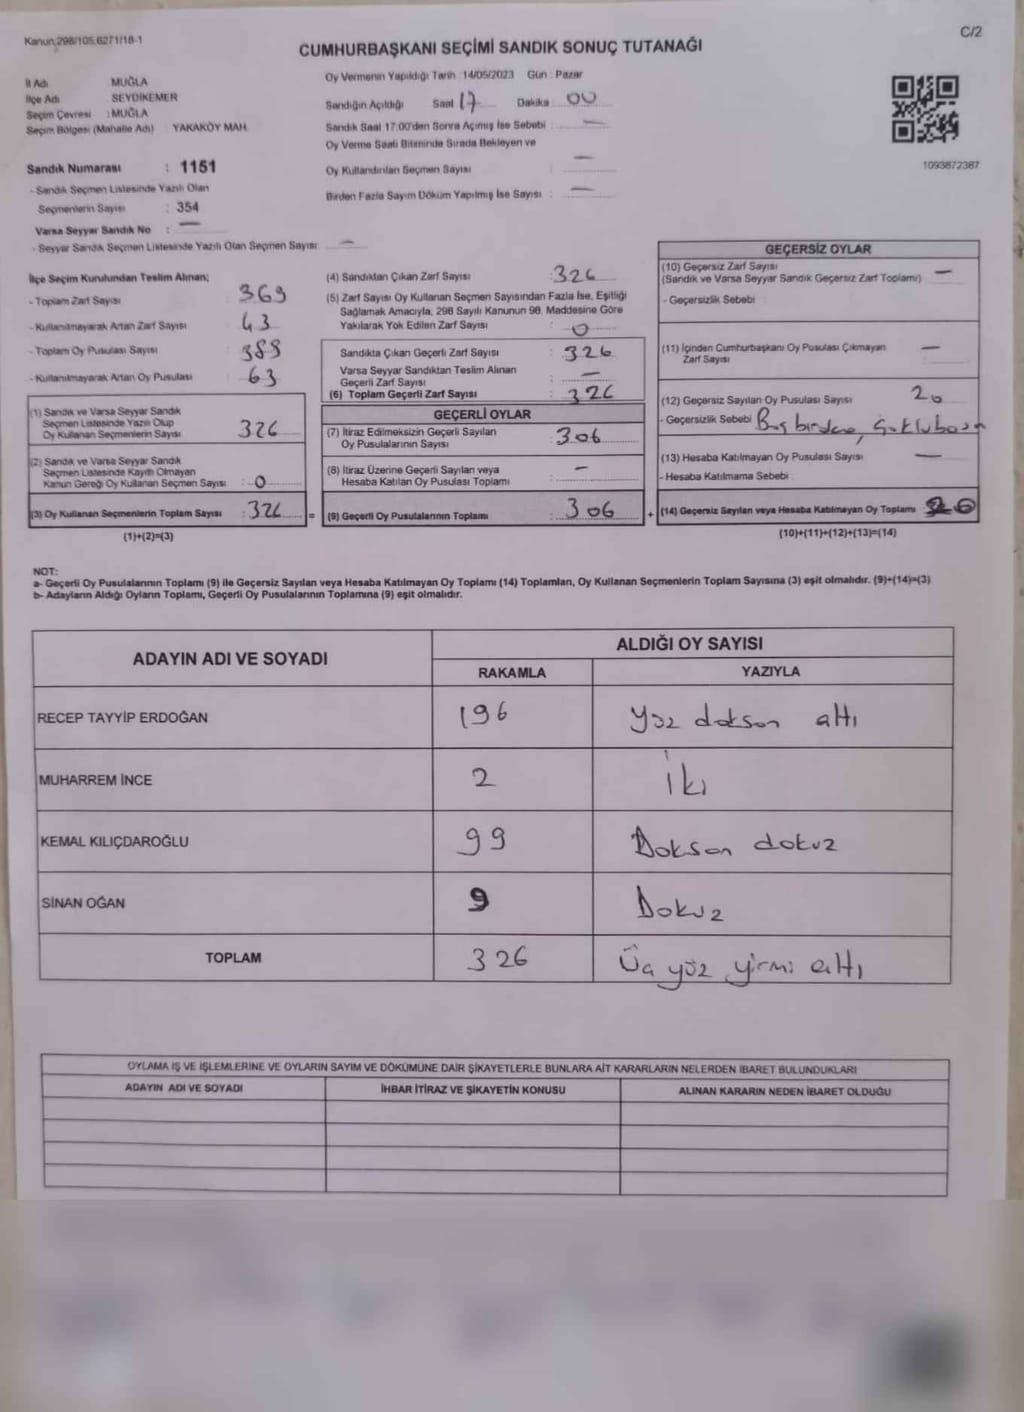 Kanun:298/105,6271/18-1
C/2
CUMHURBAŞKANI SEÇİMİ SANDIK SONUÇ TUTANAĞI
İl Adı : MUĞLA
İlçe Adı : SEYDİKEMER
Seçim Çevresi : MUĞLA
Seçim Bölgesi (Mahalle Adı) : YAKAKÖY MAH.
Sandık Numarası : 1151
- Sandık Seçmen Listesinde Yazılı Olan
Seçmenlerin Sayısı : 354
Varsa Seyyar Sandık No : —
- Seyyar Sandık Seçmen Listesinde Yazılı Olan Seçmen Sayısı: —
Oy Vermenin Yapıldığı Tarih :14/05/2023 Gün : Pazar
Sandığın Açıldığı Saat 17 Dakika 00
Sandık Saat 17:00'den Sonra Açılmış İse Sebebi : —
Oy Verme Saati Bitiminde Sırada Bekleyen ve
Oy Kullandırılan Seçmen Sayısı : —
Birden Fazla Sayım Döküm Yapılmış İse Sayısı : —
1093872387
İlçe Seçim Kurulundan Teslim Alınan;
- Toplam Zarf Sayısı : 369
- Kullanılmayarak Artan Zarf Sayısı : 43
- Toplam Oy Pusulası Sayısı : 389
- Kullanılmayarak Artan Oy Pusulası : 63
(1) Sandık ve Varsa Seyyar Sandık
Seçmen Listesinde Yazılı Olup
Oy Kullanan Seçmenlerin Sayısı : 326
(2) Sandık ve Varsa Seyyar Sandık
Seçmen Listesinde Kayıtlı Olmayan
Kanun Gereği Oy Kullanan Seçmen Sayısı : 0
(3) Oy Kullanan Seçmenlerin Toplam Sayısı : 326 =
(1)+(2)=(3)
(4) Sandıktan Çıkan Zarf Sayısı : 326
(5) Zarf Sayısı Oy Kullanan Seçmen Sayısından Fazla İse, Eşitliği
Sağlamak Amacıyla, 298 Sayılı Kanunun 98. Maddesine Göre
Yakılarak Yok Edilen Zarf Sayısı : 0
Sandıkta Çıkan Geçerli Zarf Sayısı : 326
Varsa Seyyar Sandıktan Teslim Alınan
Geçerli Zarf Sayısı : —
(6) Toplam Geçerli Zarf Sayısı : 326
GEÇERLİ OYLAR
(7) İtiraz Edilmeksizin Geçerli Sayılan
Oy Pusulalarının Sayısı : 306
(8) İtiraz Üzerine Geçerli Sayılan veya
Hesaba Katılan Oy Pusulası Toplamı : —
(9) Geçerli Oy Pusulalarının Toplamı : 306 +
GEÇERSİZ OYLAR
(10) Geçersiz Zarf Sayısı
(Sandık ve Varsa Seyyar Sandık Geçersiz Zarf Toplamı) : —
- Geçersizlik Sebebi :
(11) İçinden Cumhurbaşkanı Oy Pusulası Çıkmayan
Zarf Sayısı : —
(12) Geçersiz Sayılan Oy Pusulası Sayısı : 20
- Geçersizlik Sebebi :
(13) Hesaba Katılmayan Oy Pusulası Sayısı : —
- Hesaba Katılmama Sebebi :
(14) Geçersiz Sayılan veya Hesaba Katılmayan Oy Toplamı : 20
(10)+(11)+(12)+(13)=(14)
NOT:
a- Geçerli Oy Pusulalarının Toplamı (9) ile Geçersiz Sayılan veya Hesaba Katılmayan Oy Toplamı (14) Toplamları, Oy Kullanan Seçmenlerin Toplam Sayısına (3) eşit olmalıdır. (9)+(14)=(3)
b- Adayların Aldığı Oyların Toplamı, Geçerli Oy Pusulalarının Toplamına (9) eşit olmalıdır.
ADAYIN ADI VE SOYADI ALDIĞI OY SAYISI
RAKAMLA YAZIYLA
RECEP TAYYİP ERDOĞAN 196 Yüz doksan altı
MUHARREM İNCE 2 İki
KEMAL KILIÇDAROĞLU 99 Doksan dokuz
SİNAN OĞAN 9 Dokuz
TOPLAM 326 Üç yüz yirmi altı
OYLAMA İŞ VE İŞLEMLERİNE VE OYLARIN SAYIM VE DÖKÜMÜNE DAİR ŞİKAYETLERLE BUNLARA AİT KARARLARIN NELERDEN İBARET BULUNDUKLARI
ADAYIN ADI VE SOYADI İHBAR İTİRAZ VE ŞİKAYETİN KONUSU ALINAN KARARIN NEDEN İBARET OLDUĞU